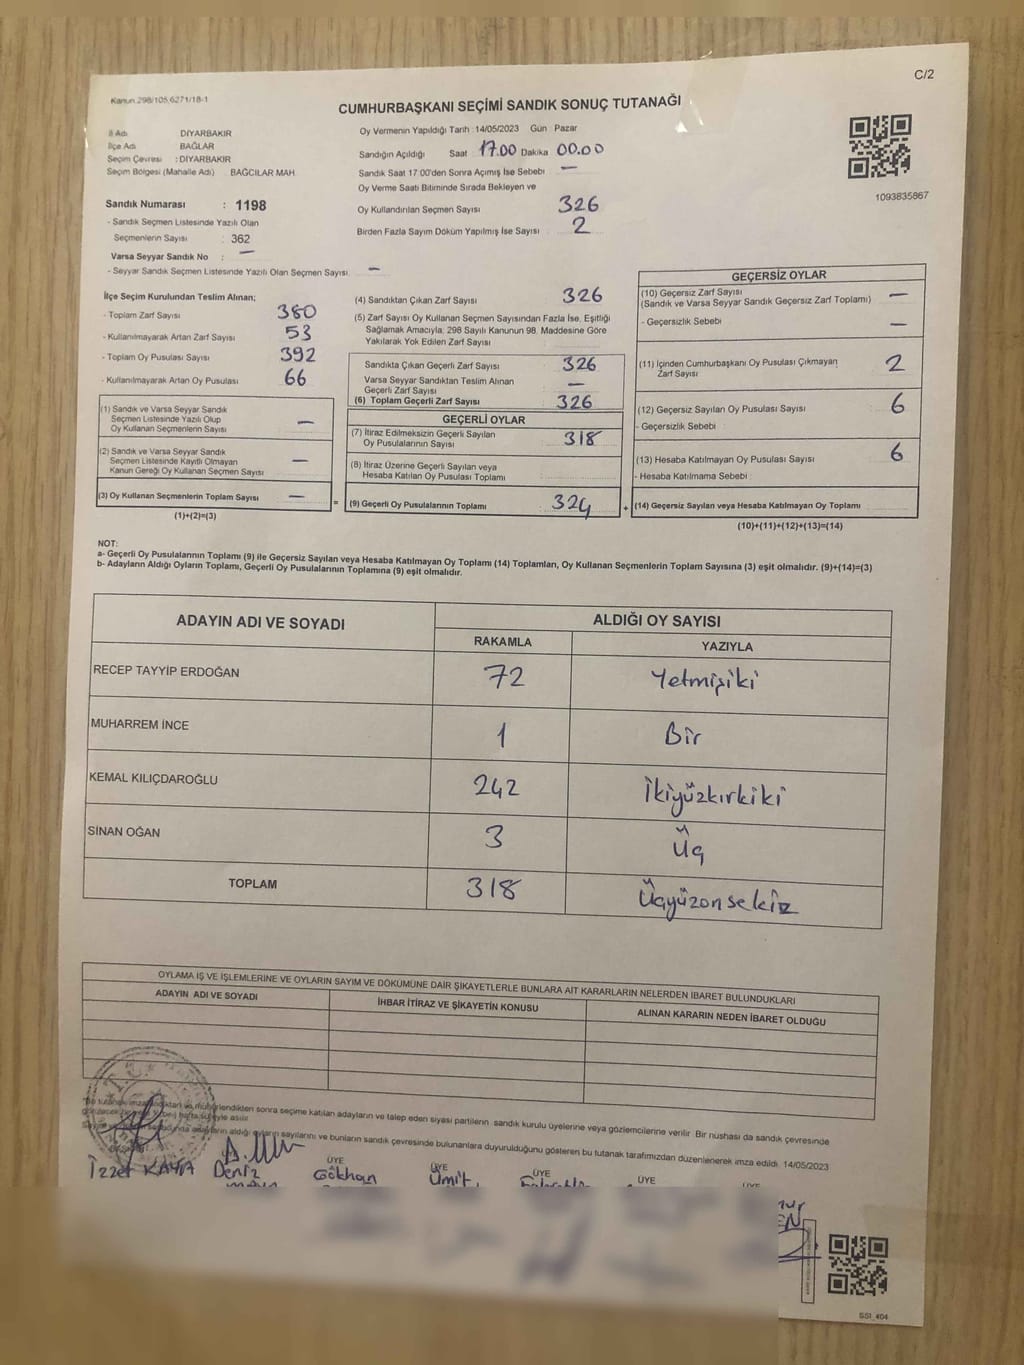 C/2
Kanun.298/105,6271/18-1
CUMHURBAŞKANI SEÇİMİ SANDIK SONUÇ TUTANAĞI
İl Adı DİYARBAKIR
İlçe Adı BAĞLAR
Seçim Çevresi : DİYARBAKIR
Seçim Bölgesi (Mahalle Adı) BAĞCILAR MAH.
Sandık Numarası : 1198
- Sandık Seçmen Listesinde Yazılı Olan
Seçmenlerin Sayısı : 362
Varsa Seyyar Sandık No : —
- Seyyar Sandık Seçmen Listesinde Yazılı Olan Seçmen Sayısı —
Oy Vermenin Yapıldığı Tarih : 14/05/2023 Gün Pazar
Sandığın Açıldığı Saat 17.00 Dakika 00.00
Sandık Saat 17:00'den Sonra Açımış İse Sebebi —
Oy Verme Saati Bitiminde Sırada Bekleyen ve
Oy Kullandırılan Seçmen Sayısı 326
Birden Fazla Sayım Döküm Yapılmış İse Sayısı 2
1093835867
İlçe Seçim Kurulundan Teslim Alınan;
- Toplam Zarf Sayısı 380
- Kullanılmayarak Artan Zarf Sayısı 53
- Toplam Oy Pusulası Sayısı 392
- Kullanılmayarak Artan Oy Pusulası 66
(1) Sandık ve Varsa Seyyar Sandık
Seçmen Listesinde Yazılı Olup
Oy Kullanan Seçmenlerin Sayısı —
(2) Sandık ve Varsa Seyyar Sandık
Seçmen Listesinde Kayıtlı Olmayan
Kanun Gereği Oy Kullanan Seçmen Sayısı —
(3) Oy Kullanan Seçmenlerin Toplam Sayısı — =
(1)+(2)=(3)
(4) Sandıktan Çıkan Zarf Sayısı 326
(5) Zarf Sayısı Oy Kullanan Seçmen Sayısından Fazla İse, Eşitliği
Sağlamak Amacıyla; 298 Sayılı Kanunun 98. Maddesine Göre
Yakılarak Yok Edilen Zarf Sayısı
Sandıkta Çıkan Geçerli Zarf Sayısı 326
Varsa Seyyar Sandıktan Teslim Alınan
Geçerli Zarf Sayısı —
(6) Toplam Geçerli Zarf Sayısı 326
GEÇERLİ OYLAR
(7) İtiraz Edilmeksizin Geçerli Sayılan
Oy Pusulalarının Sayısı 318
(8) İtiraz Üzerine Geçerli Sayılan veya
Hesaba Katılan Oy Pusulası Toplamı
(9) Geçerli Oy Pusulalarının Toplamı 324 +
GEÇERSİZ OYLAR
(10) Geçersiz Zarf Sayısı
(Sandık ve Varsa Seyyar Sandık Geçersiz Zarf Toplamı) —
- Geçersizlik Sebebi —
(11) İçinden Cumhurbaşkanı Oy Pusulası Çıkmayan
Zarf Sayısı 2
(12) Geçersiz Sayılan Oy Pusulası Sayısı 6
- Geçersizlik Sebebi
(13) Hesaba Katılmayan Oy Pusulası Sayısı 6
- Hesaba Katılmama Sebebi
(14) Geçersiz Sayılan veya Hesaba Katılmayan Oy Toplamı
(10)+(11)+(12)+(13)=(14)
NOT:
a- Geçerli Oy Pusulalarının Toplamı (9) ile Geçersiz Sayılan veya Hesaba Katılmayan Oy Toplamı (14) Toplamları, Oy Kullanan Seçmenlerin Toplam Sayısına (3) eşit olmalıdır. (9)+(14)=(3)
b- Adayların Aldığı Oyların Toplamı, Geçerli Oy Pusulalarının Toplamına (9) eşit olmalıdır.
ADAYIN ADI VE SOYADI ALDIĞI OY SAYISI
RAKAMLA YAZIYLA
RECEP TAYYİP ERDOĞAN 72 Yetmişiki
MUHARREM İNCE 1 Bir
KEMAL KILIÇDAROĞLU 242 İkiyüzkırkiki
SİNAN OĞAN 3 Üç
TOPLAM 318 Üçyüzonsekiz
OYLAMA İŞ VE İŞLEMLERİNE VE OYLARIN SAYIM VE DÖKÜMÜNE DAİR ŞİKAYETLERLE BUNLARA AİT KARARLARIN NELERDEN İBARET BULUNDUKLARI
ADAYIN ADI VE SOYADI İHBAR İTİRAZ VE ŞİKAYETİN KONUSU ALINAN KARARIN NEDEN İBARET OLDUĞU
sonra seçime katılan adayların ve talep eden siyasi partilerin sandık kurulu üyelerine veya gözlemcilerine verilir. Bir nüshası da sandık çevresinde
süreyle asılır
aldığı oyların sayılarını ve bunların sandık çevresinde bulunanlara duyurulduğunu gösteren bu tutanak tarafımızdan düzenlenerek imza edildi. 14/05/2023
ÜYE ÜYE ÜYE ÜYE ÜYE
İzzet KAYA Deniz Gökhan Ümit
SS1_404